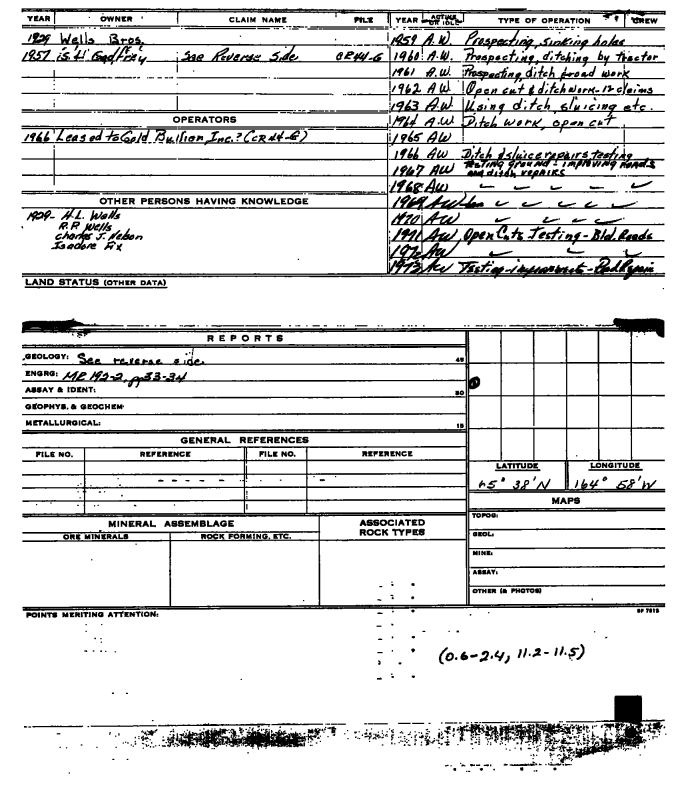 YEAR OWNER CLAIM NAME FILE
1929 Wells Bros.
1957 See Reverse Side
OPERATORS
1966 Leased to Gold Bullion, Inc.
OTHER PERSONS HAVING KNOWLEDGE
1929- H.L. Wells
R.P. Wells
Charles J. Nelson
Isadore Fix
YEAR ACTIVE OR IDLE TYPE OF OPERATION CREW
1959 A.W. Prospecting, sinking holes
1960 A.W. Prospecting, ditching by tractor
1961 A.W. Prospecting, ditch road work
1962 A.W Open cut & ditchwork-12 claims
1963 A.W Using ditch, sluicing etc.
1964 A.W Ditch work, open cut
1965 AW
1966 AW Ditch & sluice repairs testing
1967 AW Testing ground - improving roads
and ditch repairs
1968 AW
1969 AW
1970 AW
1971 AW Open Cuts Testing - Bld. Roads
1972 AW
1973 AW Testing - - Road Repair
LAND STATUS (OTHER DATA)
REPORTS
GEOLOGY: See reverse side.
ENGRG: MR 192-2, pp33-34
ASSAY & IDENT:
GEOPHYS. & GEOCHEM
METALLURGICAL:
GENERAL REFERENCES
FILE NO. REFERENCE FILE NO. REFERENCE
LATITUDE LONGITUDE
65° 38'N 164° 58'W
MAPS
TOPOG:
GEOL:
MINE:
ASSAY:
OTHER (& PHOTOS)
MINERAL ASSEMBLAGE ASSOCIATED ROCK TYPES
ORE MINERALS ROCK FORMING, ETC.
POINTS MERITING ATTENTION:
(0.6-2.4, 11.2-11.5)